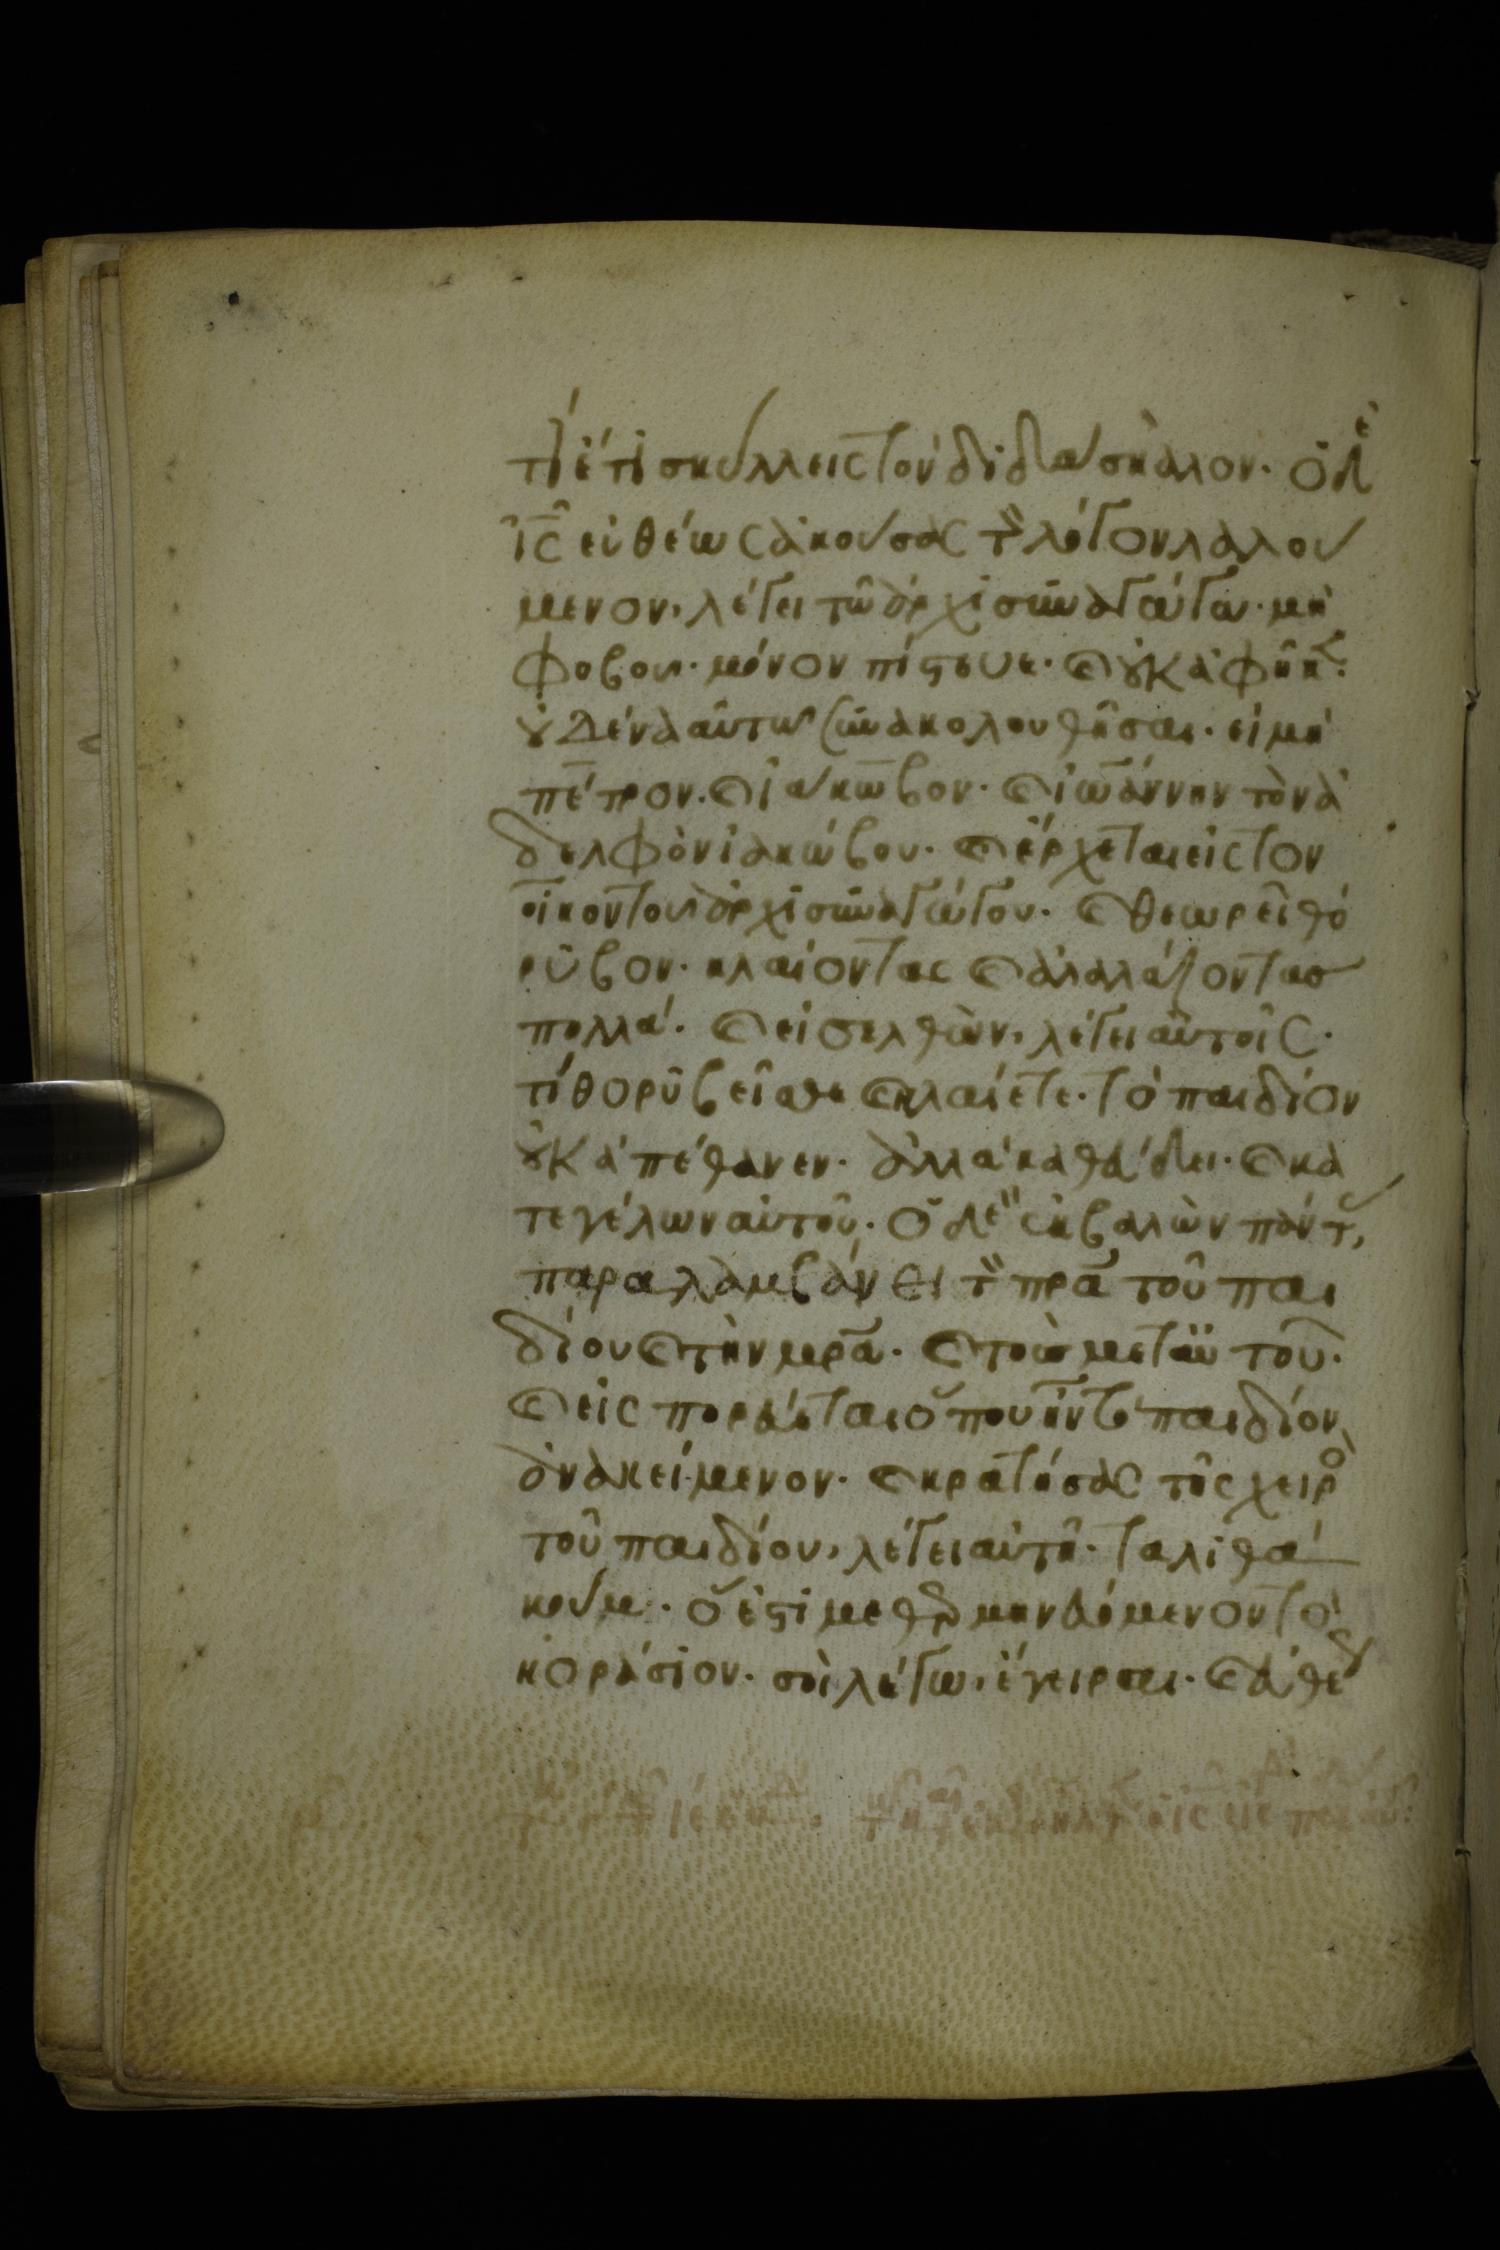 τί ἔτι σκύλλεις τὸν διδάσκαλον· ὁ δὲ
ι̅ς̅ εὐθέως ἀκούσας τὸν λόγον λαλού
μενον, λέγει τῶ ἀρχισυναγώγω· μὴ
φοβου· μόνον πίστευε· κ οὐκ ἀφῆκεν
οὐδένα αὐτῶ συνακολουθῆσαι· εἰ μὴ
πέτρον· κ ἰάκωβον· κ ἰωάννην τὸν ἀ
δελφὸν ἰακώβου· κ ἔρχεται εἰς τὸν
οἶκον τοῦ ἀρχισυναγώγου· κ θεωρεῖ θό
ρυβον· κλαίοντας κ ἀλαλάζοντας
πολλά· κ εἰσελθὼν, λέγει αὐτοῖς·
τί θορυβεῖσθε κ κλαίετε· τὸ παιδίον
οὐκ ἀπέθανεν· ἀλλὰ καθεύδει· κ κα
τεγέλων αὐτοῦ· ὁ δὲ ἐκβαλὼν πάντ,
παραλαμβάνει τὸν π̅ρ̅α̅ τοῦ παι
δίου κ τὴν μ̅ρ̅α̅· κ τοὺς μετ αὐτοῦ·
κ εἰσπορεύεται ὅπου ἦν τὸ παιδίον
ἀνακείμενον· κ κρατήσας τῆς χειρὸ
τοῦ παιδίου, λέγει αὐτῆ· ταλιθὰ
κούμι· ὅ ἐστι μεθερμηνευόμενον τὸ
κοράσιον· σοὶ λέγω, ἔγειραι· κ εὐθέ